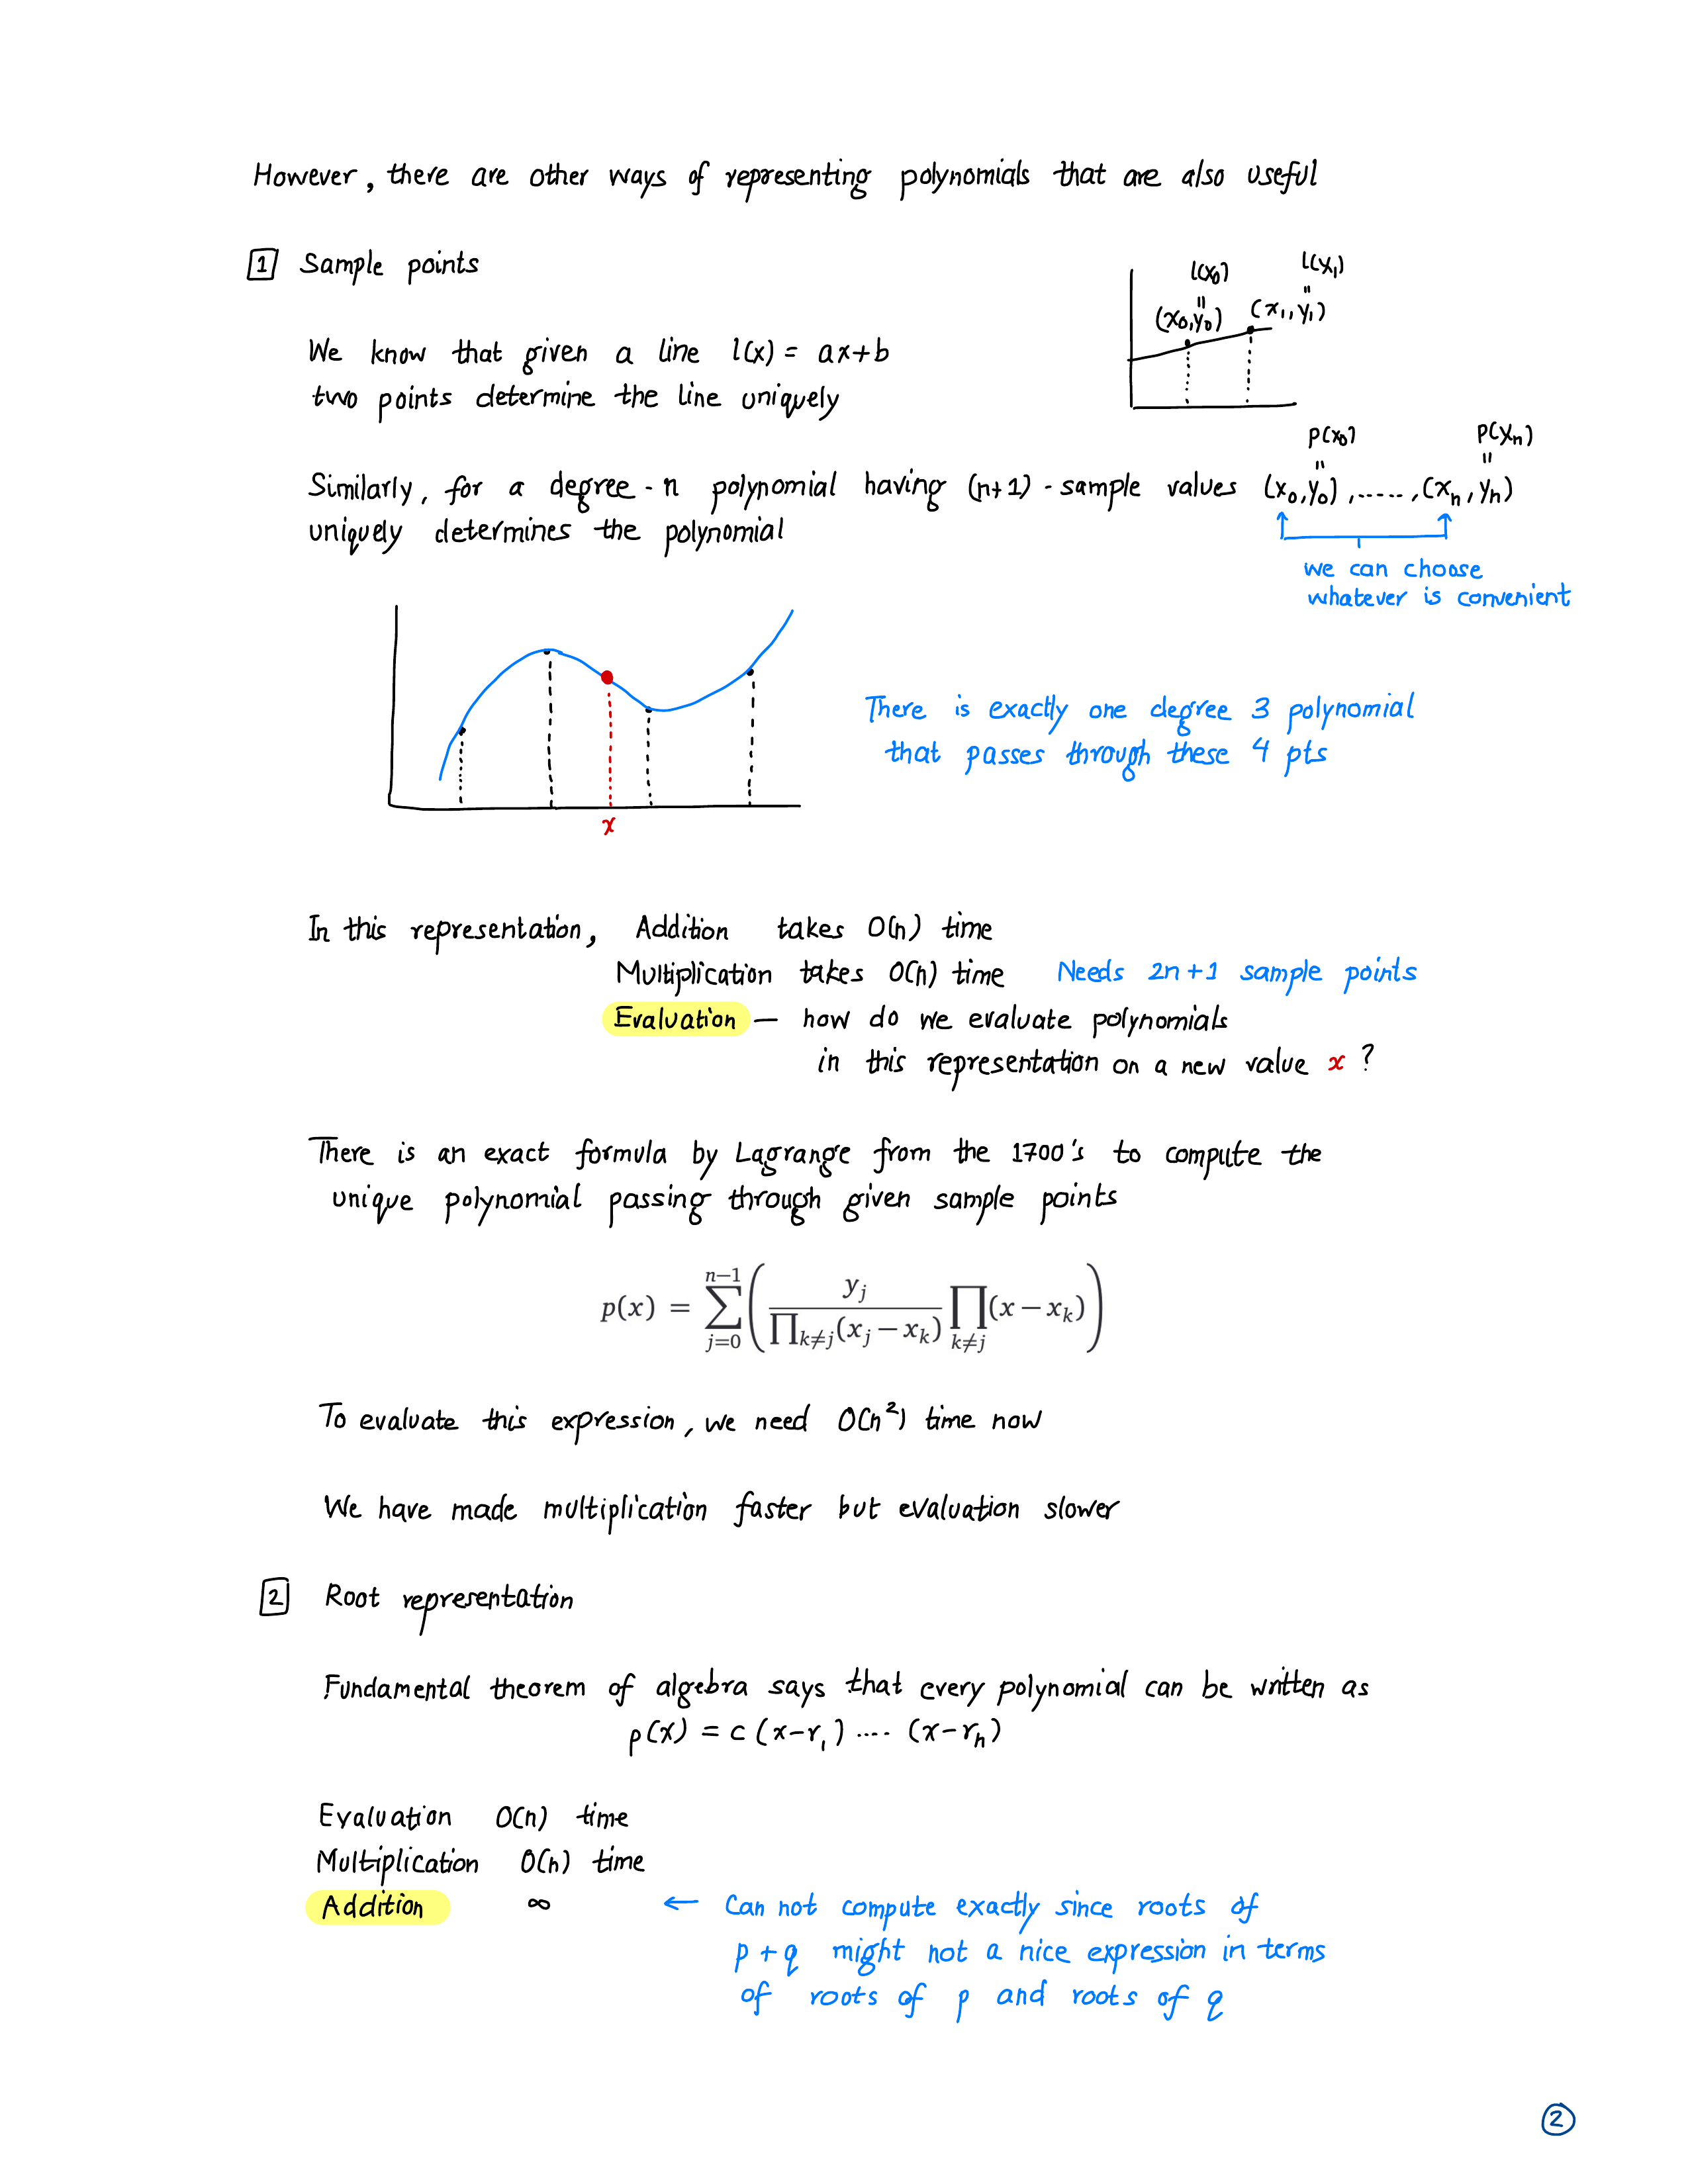 However, there are other ways of representing polynomials that are also useful
1 Sample points
l(x₀) l(x₁)
" "
(x₀,y₀) (x₁,y₁)
We know that given a line l(x) = ax+b
two points determine the line uniquely
p(x₀) p(xₙ)
" "
Similarly, for a degree-n polynomial having (n+1)-sample values (x₀,y₀),......,(xₙ,yₙ)
uniquely determines the polynomial
we can choose
whatever is convenient
There is exactly one degree 3 polynomial
that passes through these 4 pts
x
In this representation, Addition takes O(n) time
Multiplication takes O(n) time Needs 2n+1 sample points
Evaluation — how do we evaluate polynomials
in this representation on a new value x ?
There is an exact formula by Lagrange from the 1700's to compute the
unique polynomial passing through given sample points
p(x) = ∑_{j=0}^{n−1} ( y_j / ∏_{k≠j}(x_j − x_k) ∏_{k≠j}(x − x_k) )
To evaluate this expression, we need O(n²) time now
We have made multiplication faster but evaluation slower
2 Root representation
Fundamental theorem of algebra says that every polynomial can be written as
p(x) = c (x-r₁) .... (x-rₙ)
Evaluation O(n) time
Multiplication O(n) time
Addition ∞ ← Can not compute exactly since roots of
p+q might not a nice expression in terms
of roots of p and roots of q
2